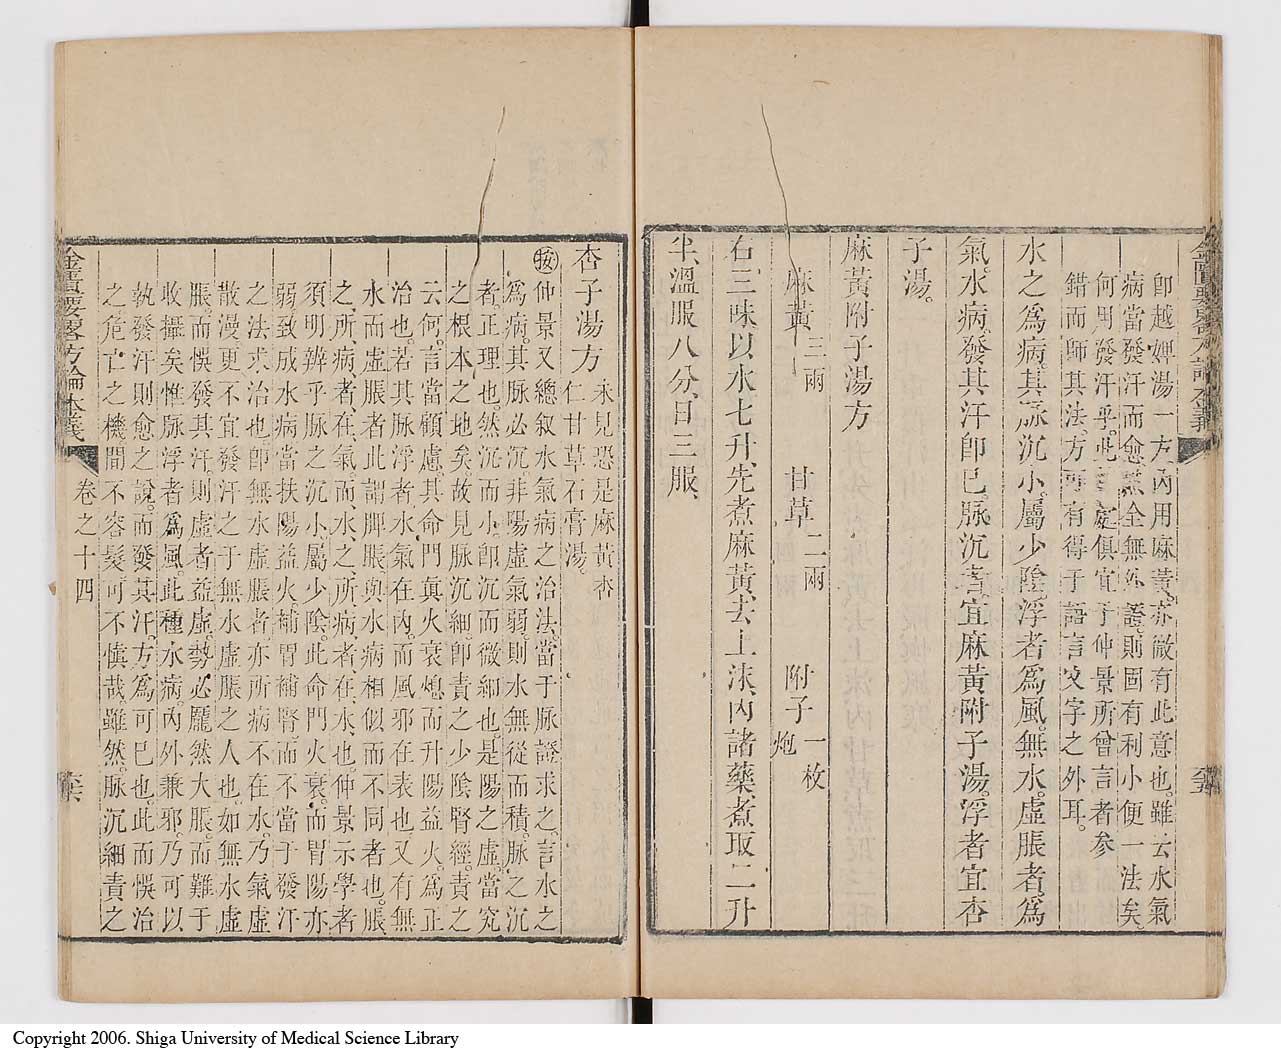 即越婢湯一方內用麻黃亦微有此意也雖云水氣
病當發汗而愈然全無外證則固有利小便一法矣
何用發汗乎此處俱宜于仲景所曾言者參
錯而師其法方可有得于語言文字之外耳
水之爲病其脉沉小屬少陰浮者爲風無水虛脹者爲
氣水病發其汗即已脈沉者宜麻黃附子湯浮者宜杏
子湯
麻黃附子湯方
麻黃三兩 甘草二兩 附子一枚炮
右三味以水七升先煮麻黃去上沫內諸藥煮取二升
半溫服八分日三服
杏子湯方 未見恐是麻黃杏
仁甘草石膏湯
按仲景又總叙水氣病之治法當于脉證求之言水之
爲病其脉必沉非陽虛氣弱則水無從而積脈之沉
者正理也然沉而小即沉而微細也是陽之虛當究
之根本之地矣故見脈沉細即責之少陰腎經責之
云何言當顧慮其命門真火衰熄而升陽益火爲正
治也若其脈浮者水氣在內而風邪在表也又有無
水而虛脹者此謂脾脹與水病相似而不同者也脹
之所病者在氣而水之所病者在水也仲景示學者
須明辨乎脈之沉小屬少陰此命門火衰而胃陽亦
弱致成水病當扶陽益火補胃補腎而不當于發汗
之法求治也即無水虛脹者亦所病不在水乃氣虛
散漫更不宜發汗之于無水虛脹之人也如無水虛
脹而悞發其汗則虛者益虛勢必龐然大脹而難于
收攝矣惟脈浮者爲風此種水病內外兼邪乃可以
執發汗則愈之說而發其汗方爲可已也此而悞治
之危亡之機間不容髮可不慎哉雖然脈沉細責之
金匱要畧方論本義 卷之十四